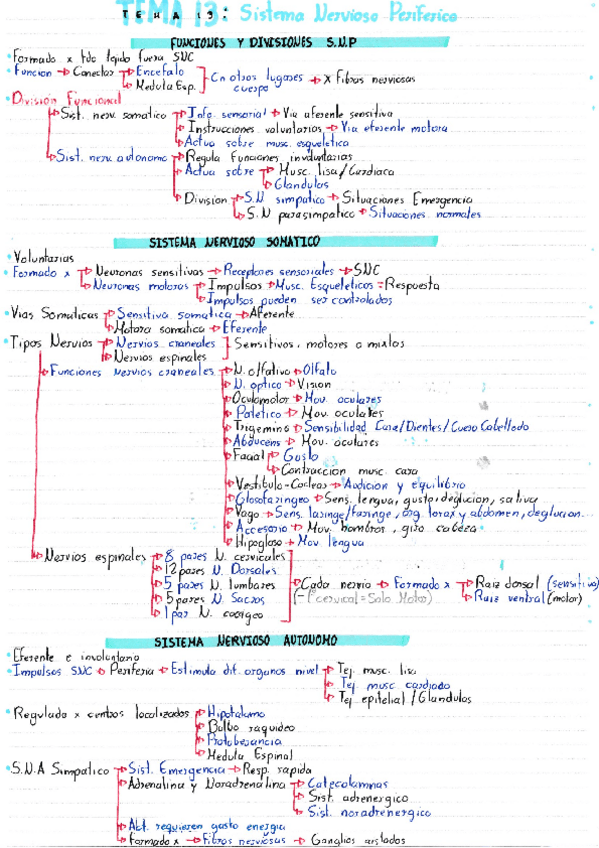 TEMA 13: Sistema Nervioso Periferico
FUNCIONES Y DIVISIONES S.N.P
Formado x tdo tejido fuera SNC
Funcion → Conectar → Encefalo
→ Medula Esp.
Cn otros lugares cuerpo → x Fibras nerviosas
Division Funcional
Sist. nerv. somatico → Info. sensorial → Via aferente sensitiva
→ Instrucciones voluntarias → Via eferente motora
→ Actua sobre musc. esqueletica
Sist. nerv. autonomo → Regula funciones involuntarias
→ Actua sobre → Musc. lisa/Cardiaca
→ Glandulas
→ Division → S.N simpatico → Situaciones Emergencia
→ S.N parasimpatico → Situaciones normales
SISTEMA NERVIOSO SOMATICO
Voluntarias
Formado x → Neuronas sensitivas → Receptores sensoriales → SNC
→ Neuronas motoras → Impulsos → Musc. Esqueleticos → Respuesta
→ Impulsos pueden ser controlados
Vias Somaticas → Sensitiva somatica → Aferente
→ Motora somatica → Eferente
Tipos Nervios → Nervios craneales
→ Nervios espinales
Sensitivos, motores o mixtos
Funciones nervios craneales → N. olfativo → Olfato
→ N. optico → Vision
→ Oculomotor → Mov. oculares
→ Patetico → Mov. oculares
→ Trigemino → Sensibilidad Cara/Dientes/Cuero Cabelludo
→ Abducens → Mov. oculares
→ Facial → Gusto
→ Contraccion musc. cara
→ Vestibulo-Coclear → Audicion y equilibrio
→ Glosofaringeo → Sens. lengua, gusto, deglucion, saliva
→ Vago → Sens. laringe/faringe, org. torax y abdomen, deglucion...
→ Accesorio → Mov. hombros, giro cabeza
→ Hipogloso → Mov lengua
Nervios espinales → 8 pares N. cervicales
→ 12 pares N. Dorsales
→ 5 pares N. lumbares
→ 5 pares N. Sacros
→ 1 par N. coxigeo
Cada nervio → Formado x → Raiz dorsal (sensitiva)
(-1º cervical = Solo Motor)
→ Raiz ventral (motor)
SISTEMA NERVIOSO AUTONOMO
Eferente e involuntario
Impulsos SNC → Periferia → Estimula dif. organos nivel → Tej. musc. lisa
→ Tej. musc cardiaco
→ Tej epitelial/Glandulas
Regulado x centros localizados → Hipotalamo
→ Bulbo raquideo
→ Protuberancia
→ Medula Espinal
S.N.A Simpatico → Sist. Emergencia → Resp. rapida
→ Adrenalina y Noradrenalina → Catecolaminas
→ Sist. adrenergico
→ Sist. noradrenergico
→ Act. requieren gasto energia
→ Formado x → Fibras nerviosas → Ganglios aislados